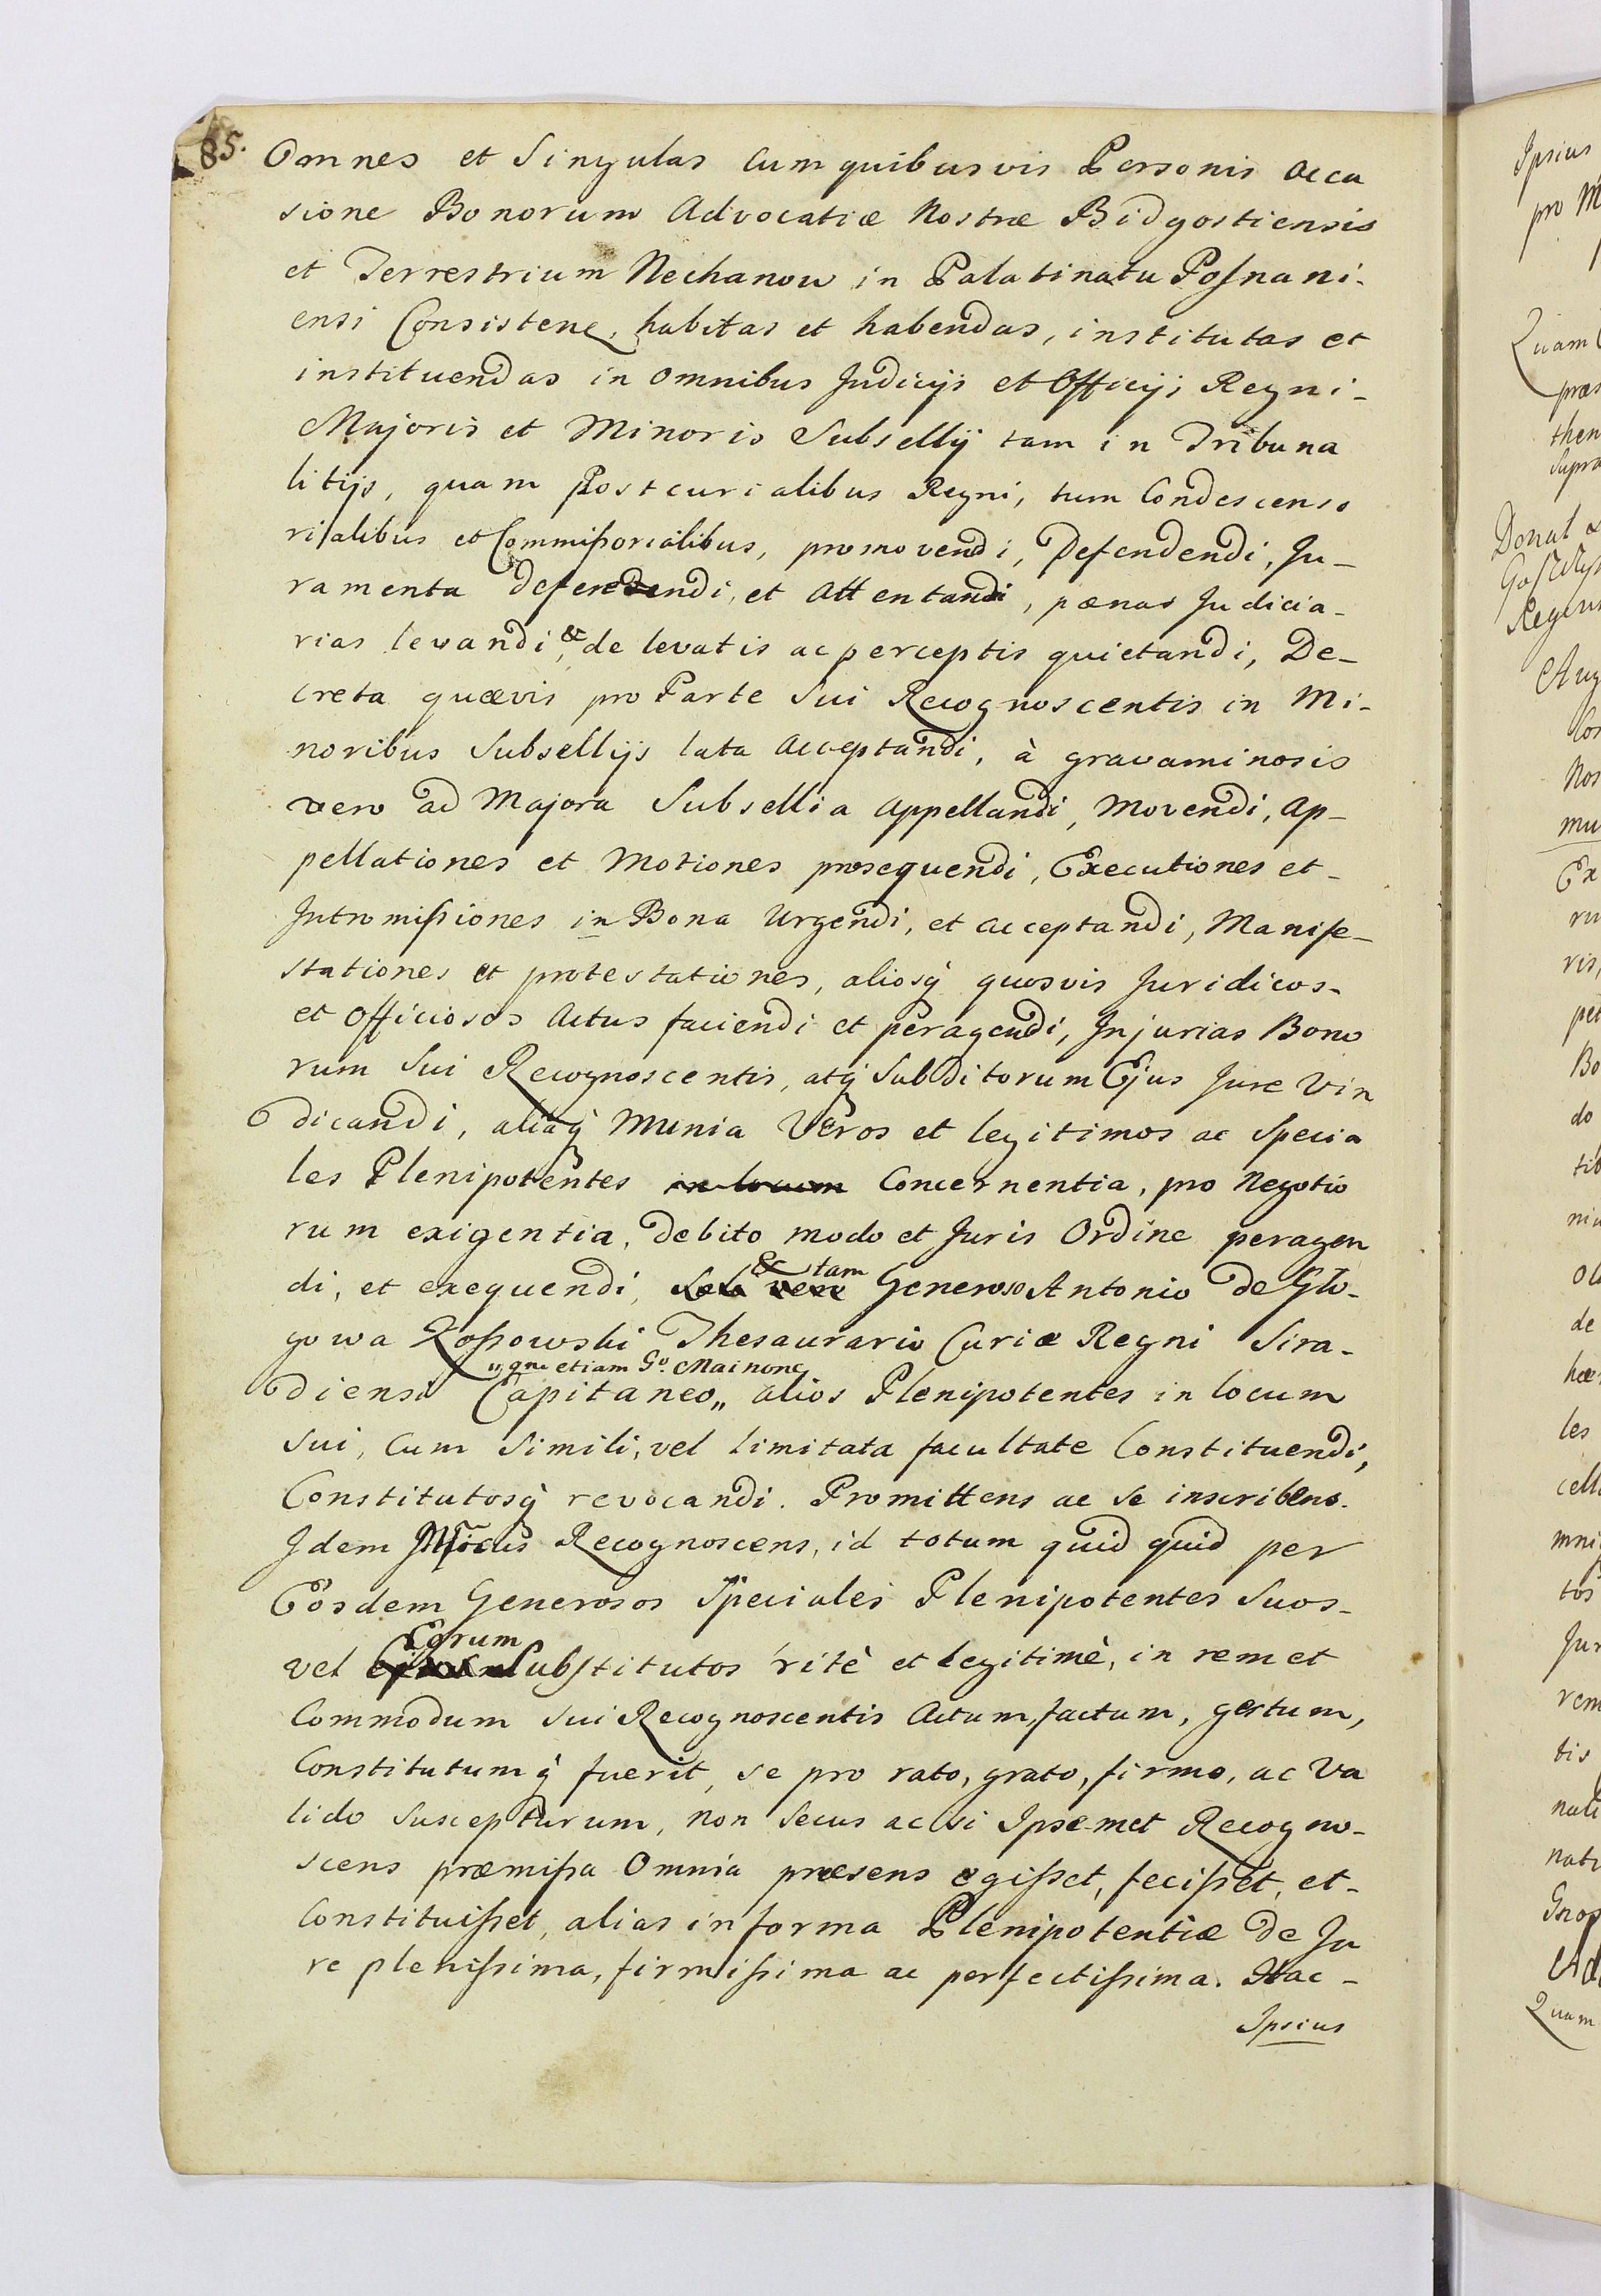 85.
Omnes et Singulas cum quibusvis Personis occa
sione Bonorum Advocatiæ Nostræ Bidgostiensis
et Terrestrium Nechanow in Palatinatu Posnani-
ensi Consisten, habitas et habendas, institutas et
instituendas in omnibus Judicijs et Officijs Regni-
Majoris et Minoris Subsellij tam in Tribuna
litijs, quam Postcurialibus Regni, tum Condescenso
rialibus et Commissorialibus, promovendi, Defendendi, Ju-
ramenta deferendi, et Attentandi, pænas Judicia-
rias levandi, & de levatis ac perceptis quietandi, De-
creta quævis pro Parte Sui Recognoscentis in Mi-
noribus Subsellijs lata Acceptandi, à gravaminosis
vero ad Majora Subsellia Appellandi, Movendi, Ap-
pellationes et Motiones prosequendi, Executiones et-
Intromissiones in Bona Urgendi, et acceptandi, Manife-
stationes et protestationes, aliosq̀ quosvis Juridicos-
et Officiosos Actus faciendi et peragendi, Injurias Bono
rum Sui Recognoscentis, atq̀ Subditorum Ejus Jure Vin
dicandi, aliaq̀ Munia Veros et legitimos ac Specia
les Plenipotentes in locum Concernentia, pro Negotio
rum exigentia, debito modo et Juris Ordine peragen
& tam
di, et exequendi, Generoso Antonio de Glo-
gowa Kossowski Thesaurario Curiæ Regni Sira-
etiam Gº. Mainonc
diensi Capitaneo,, alios Plenipotentes in locum
Sui, Cum Simili, vel limitata facultate Constituendi,
Constitutosq̀ revocandi. Promittens ac se inscribens.
Idem Recognoscens, id totum quid quid per
Eosdem Generosos Speciales Plenipotentes Suos-
Eorum
vel Substitutos rité et legitimè, in rem et
Commodum Sui Recognoscentis Actum, factum, gestum,
Constitutumq̀ fuerit, se pro rato, grato, firmo, ac Va
lido Suscepturum, non Secus ac si Ipsemet Recogno-
scens præmissa Omnia præsens egisset, fecisset, et-
Constituisset, alias in forma Plenipotentiæ de Ju
re plenissima, firmissima ac perfectissima. Hac-
Ipsius
Ipsius
pro M
Quam
præs
then
Supra
Donat
Regen
Aug
Nos
mu
Ex
ris,
pet
Bo
do
de
hæ
les
cell
mni
tos
Jur
rem
tis
nat
Quam